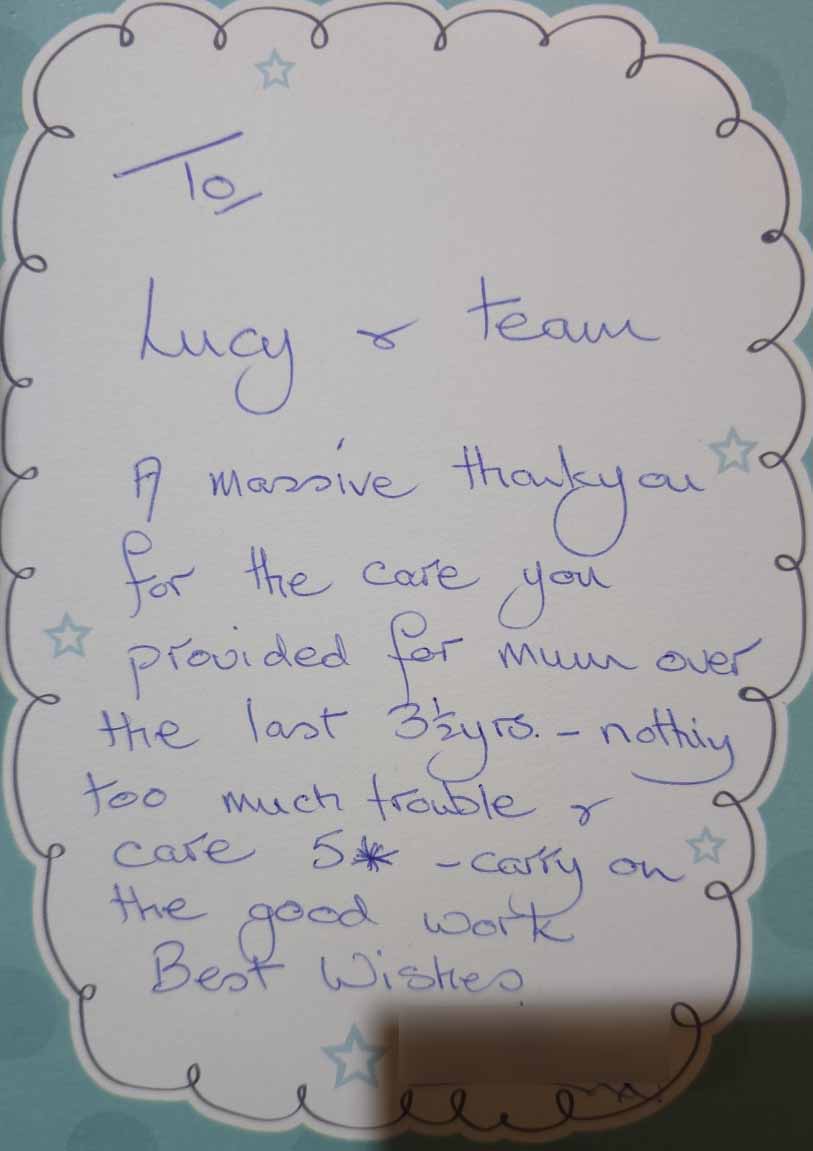 To
Lucy & team
A massive thankyou
for the care you
provided for mum over
the last 3½yrs. - nothing
too much trouble &
care 5* - carry on
the good work
Best Wishes